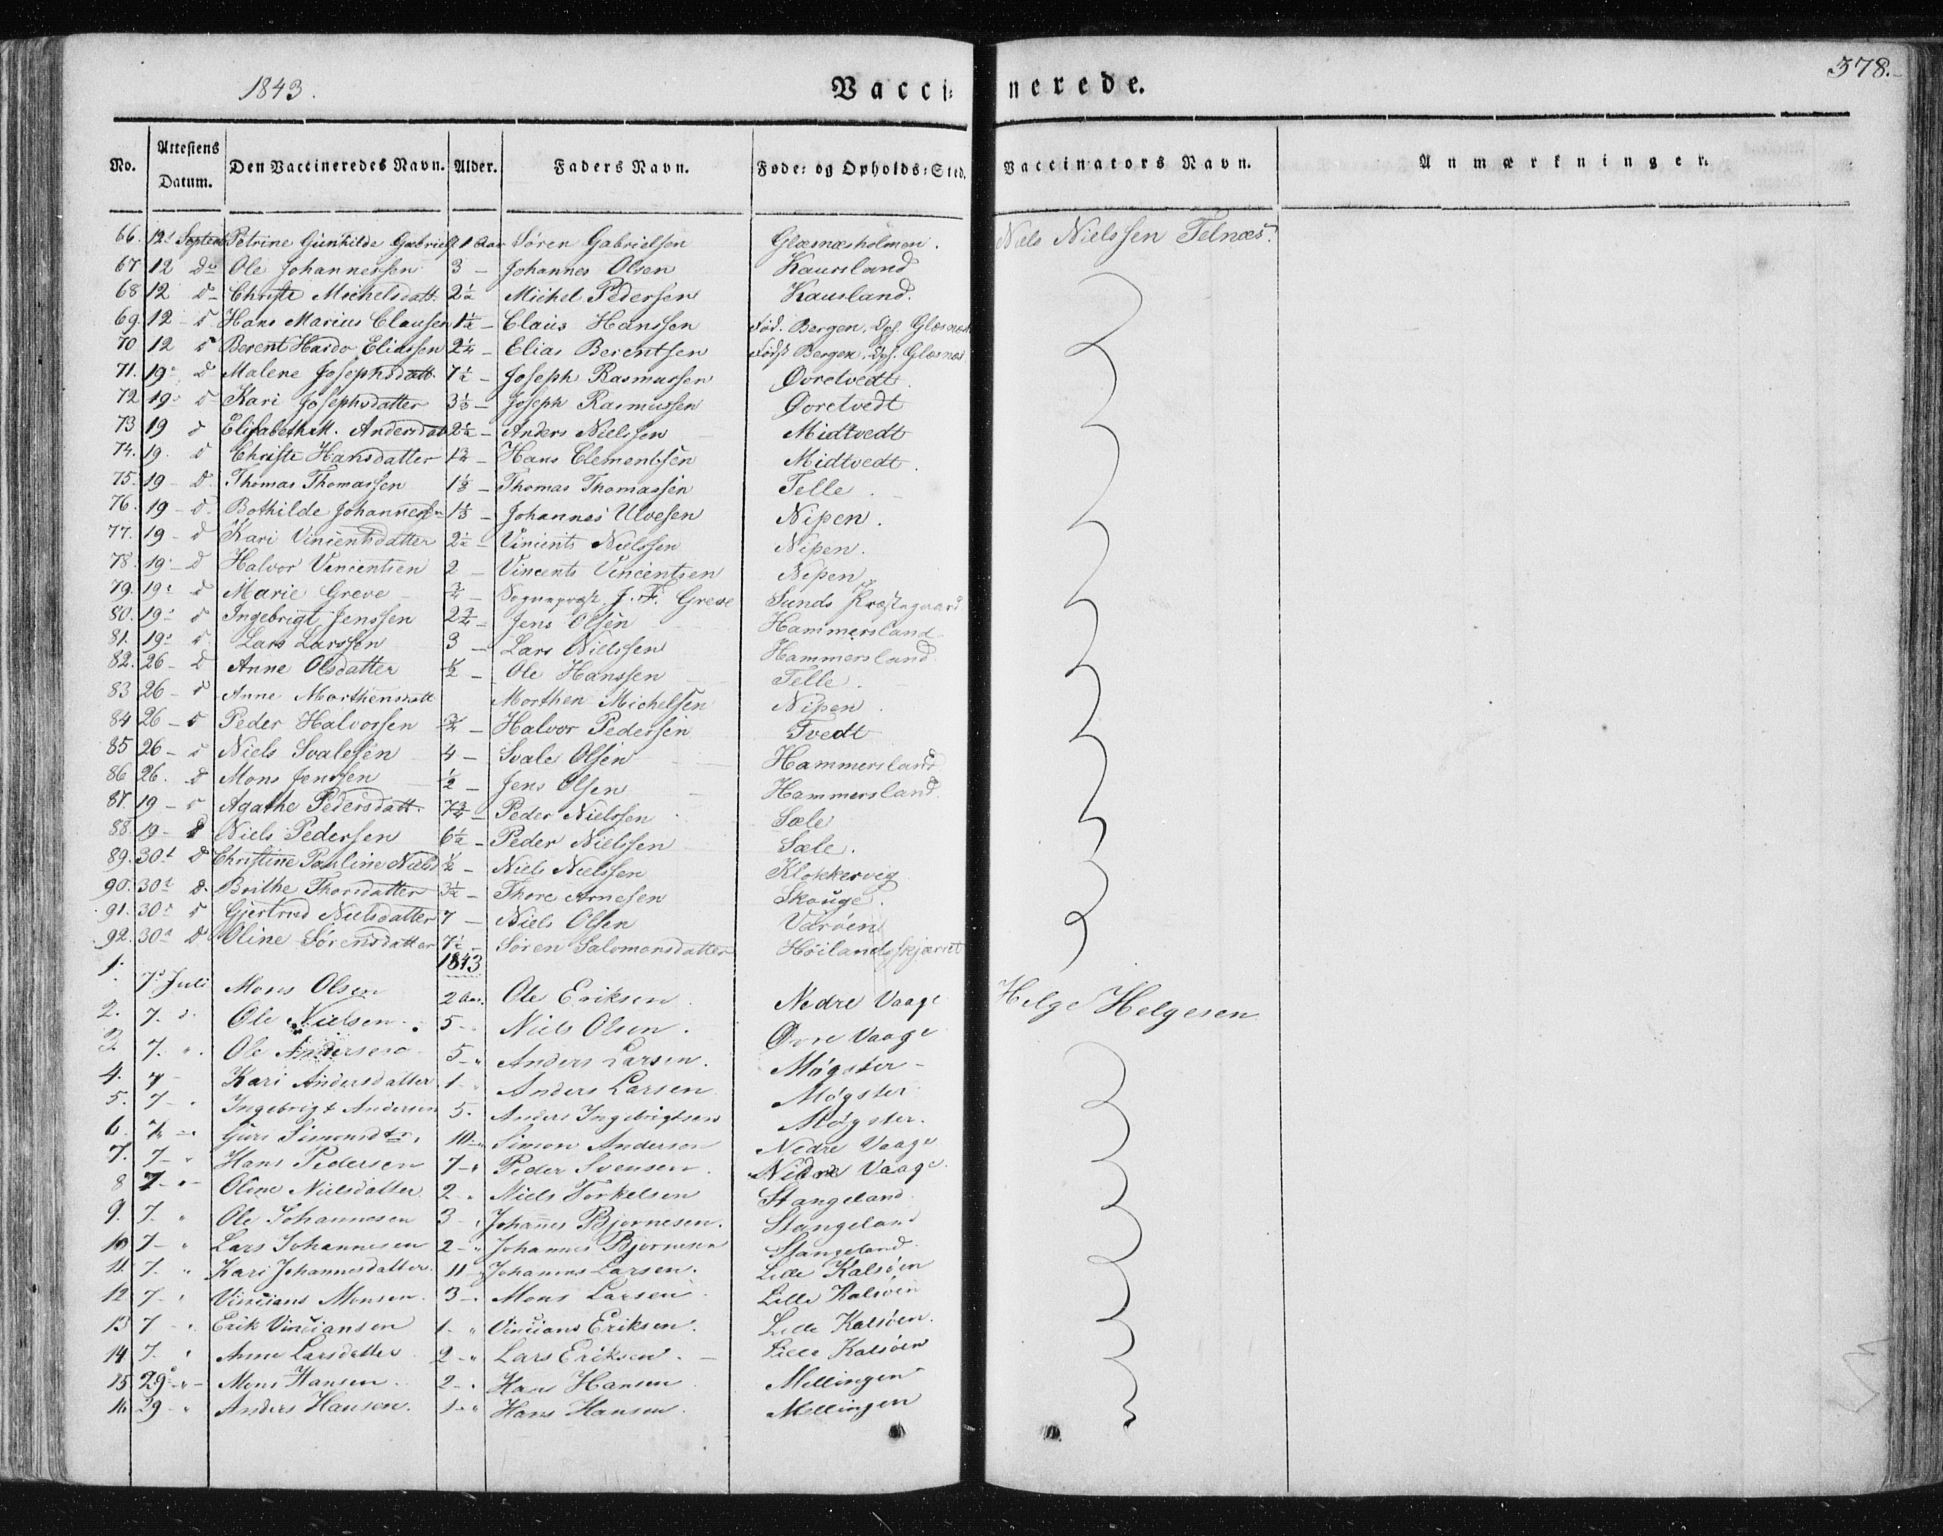 1843.
Vacci: nerede.
378.
No. Attestens Datum. Den Vaccineredes Navn. Alder. Faders Navn. Føde: og Opholds: Sted. Vaccinators Navn. Anmærkninger.
66. 12t Septem Petrine Gunhilde Gabriels 1 Aar Søren Gabrielsen Glæsnæsholmen. Niels Nielssen Telnæs.
67 12 Do Ole Johannessen 3 – Johannes Olsen Kausland
68 12 D– Christi Michelsdatt. 2½ Michel Pedersen Kausland.
69. 12 – D Hans Marius Clausen 1½ – Claus Hanssen Fød. Bergen, Opf. Glæsnæs
70 12 D Berent Hardo Eliassen 2¼ – Elias Berentsen Fødst Bergen, Opf. Glæsnæs
71. 19 – D Malene Josephsdatt. 7½ – Joseph Rasmussen Øvretvedt
72 19 – D Kari Josephsdatter 3⅓ – Joseph Rasmussen Øvretvedt
73 19 D Elisabeth M. Andersdat 2½ – Anders Nielssen – Midtvedt
74. 19. D Christi Hansdatter Hans Clementsen Midtvedt.
75. 19 – D. Thomas Thomassen – Thomas Thomassen Telle.
76. 19 – D. Bothilde Johannesd – Johannes Ulvesen Nipen.
77. 19 – D Kari Vincentsdatter 2½ – Vincents Nielssen Nipen.
78. 19 – D Halvor Vincentsen 2 – Vincents Vincentsen Nipen
79. 19 – D Marie Greve – ¾ – Sogneprest J. F. Greve Sunds Præstegaard
80. 19 – D Ingebrigt Jenssen 2¾ – Jens Olsen Hammersland
81. 19 – D Lars Larssen 3 – Lars Nielssen Hammersland
82. 26 – D Anne Olsdatter ½ – Ole Hanssen Telle.
83 26 – D Anne Morthensdatt Morthen Michelsen Nipen.
84 26 – D Peder Halvorssen ¾ – Halvor Pedersen Tvedt
85 26 – D Niels Svalesen 4 – Svale Olsen Hammersland
86 26. D Mons Jenssen ½ – Jens Olsen Hammersland
87. 19 – D Agathe Pedersdatt. 7¾ – Peder Nielssen Sæle
88. 19 – D Niels Pedersen 6½ – Peder Nielssen Sæle.
89. 30t D Christine Pauline Nielsd ½ – Niels Nielssen Klokkervig
90. 30t D. Brithe Thorsdatter 3½ – Thore Arnesen Skouge.
91. 30t D Gjertrud Nielsdatter 7 – Niels Olsen Varøen
92. 30t D Oline Sørensdatter 7½ – Søren Salomonsdatter Høilandsskjæret
1843
1. 7' Juli Mons Olsen 2 Aar. Ole Eriksen Nedre Vaage Helge Helgesen
2. 7. Ole Nielsen. 5 – Niels Olsen. Øvre Vaage
3. 7. Ole Andersen 5 – " Anders Larsen. Møgster –
4. 7 – Kari Andersdatter. 1 – Anders Larsen Møgster
5. 7 – Ingebrigt Andersen 5. Anders Ingebrigtsen Møgster.
6. 7 – Guri Simonsdtr. 10 – Simon Anderson Nedre Vaage
7. 7 – Hans Pedersen 7 – Peder Svensen. Nedre Vaage.
8 7 – Oline Nielsdatter 2 – Niels Torkelsen Stangeland
9. 7. " Ole Johannesen 3 – Johannes Bjørnesen. Stangeland
10 7 – " Lars Johannesen 2 – " Johannes Bjørnesen Stangeland
11. 7. " Kari Johannesdatter. 11 – Johannes Larsen. Lille Kalsøen
12. 7 – Vincians Monsen. 3 – Mons Larsen Lille Kalsøen
13 7 – Erik Vinciansen 1 – " Vincians Eriksen. Lille Kalsøen.
14 7. " Anne Larsdatter 2 – " Lars Eriksen. – Lille Kalsøen
15 29 – " Mons Hansen 2 – Hans Hansen Mellingen
16 29 – " Anders Hansen. 1 – " Hans Hansen. Mellingen